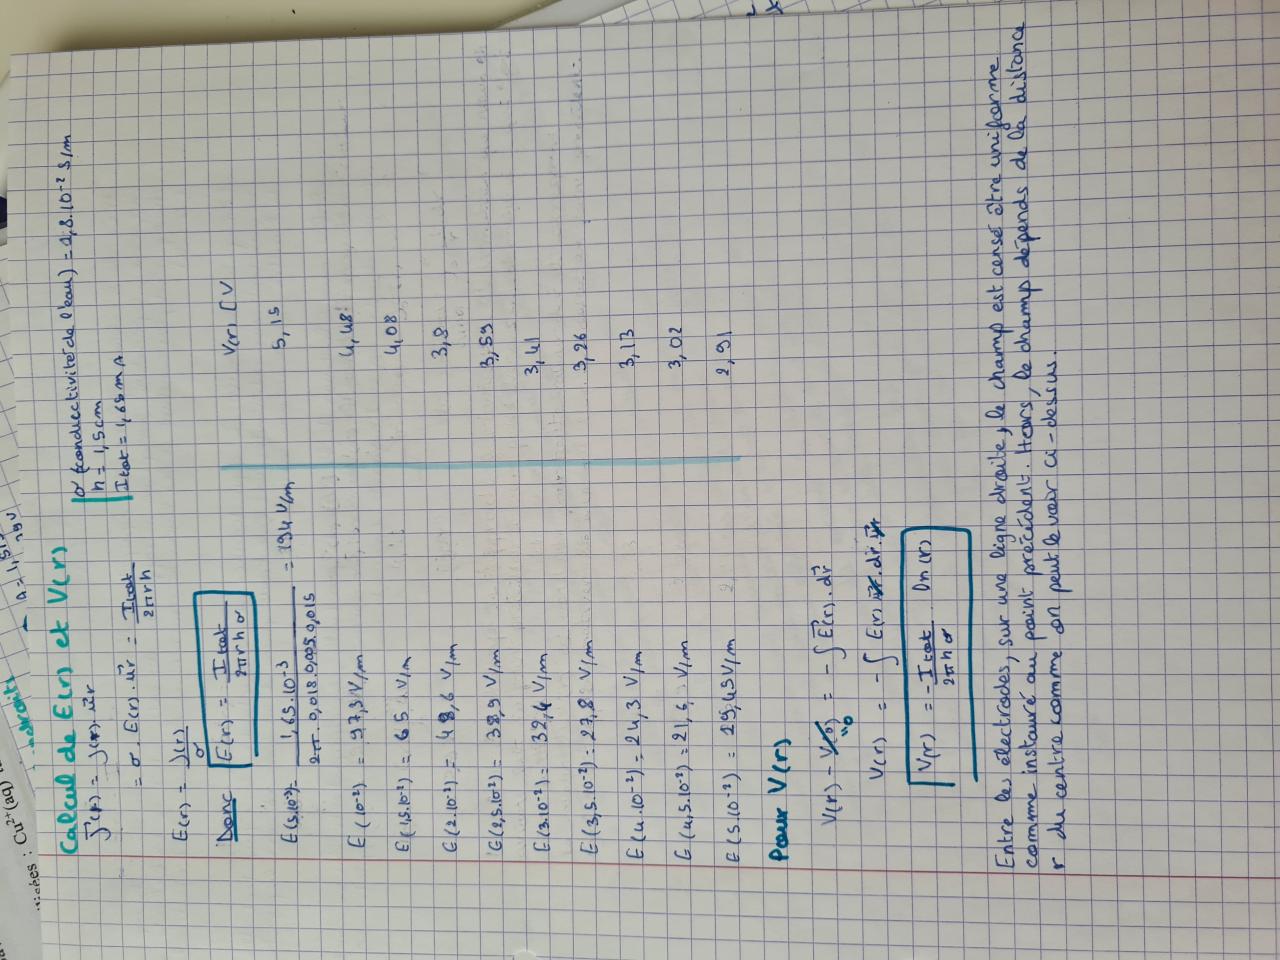 Calcul de E(r) et V(r)
j⃗(r) = j(r) · u⃗r
= σ. E(r) · u⃗r = Itot / 2πrh
σ (conductivité de l'eau) = 1,8.10⁻² S/m
h = 1,5 cm
Itot = 1,65 mA
E(r) = j(r) / σ
Donc E(r) = Itot / 2πrhσ
V(r) [V
E(5.10⁻³) = 1,65.10⁻³ / 2π. 0,018.0,005.0,015 = 194 V/m 5,15
E(10⁻²) = 97,3 V/m 4,48
E(15.10⁻²) = 65 V/m 4,08
E(2.10⁻²) = 48,6 V/m 3,8
E(2,5.10⁻²) = 38,9 V/m 3,59
E(3.10⁻²) = 32,4 V/m 3,41
E(3,5.10⁻²) = 27,8 V/m 3,26
E(4.10⁻²) = 24,3 V/m 3,13
E(4,5.10⁻²) = 21,6 V/m 3,02
E(5.10⁻²) = 19,45 V/m 2,91
Pour V(r)
V(r) - V(0) = - ∫ E⃗(r). dr⃗
"0
V(r) = - ∫ E(r) u⃗r. dr. u⃗r
V(r) = - Itot / 2πhσ ln(r)
Entre les électrodes, sur une ligne droite, le champ est censé être uniforme
comme instauré au point précédent. Hors, le champ dépends de la distance
r du centre comme on peut le voir ci-dessus.
Cu²⁺(aq)